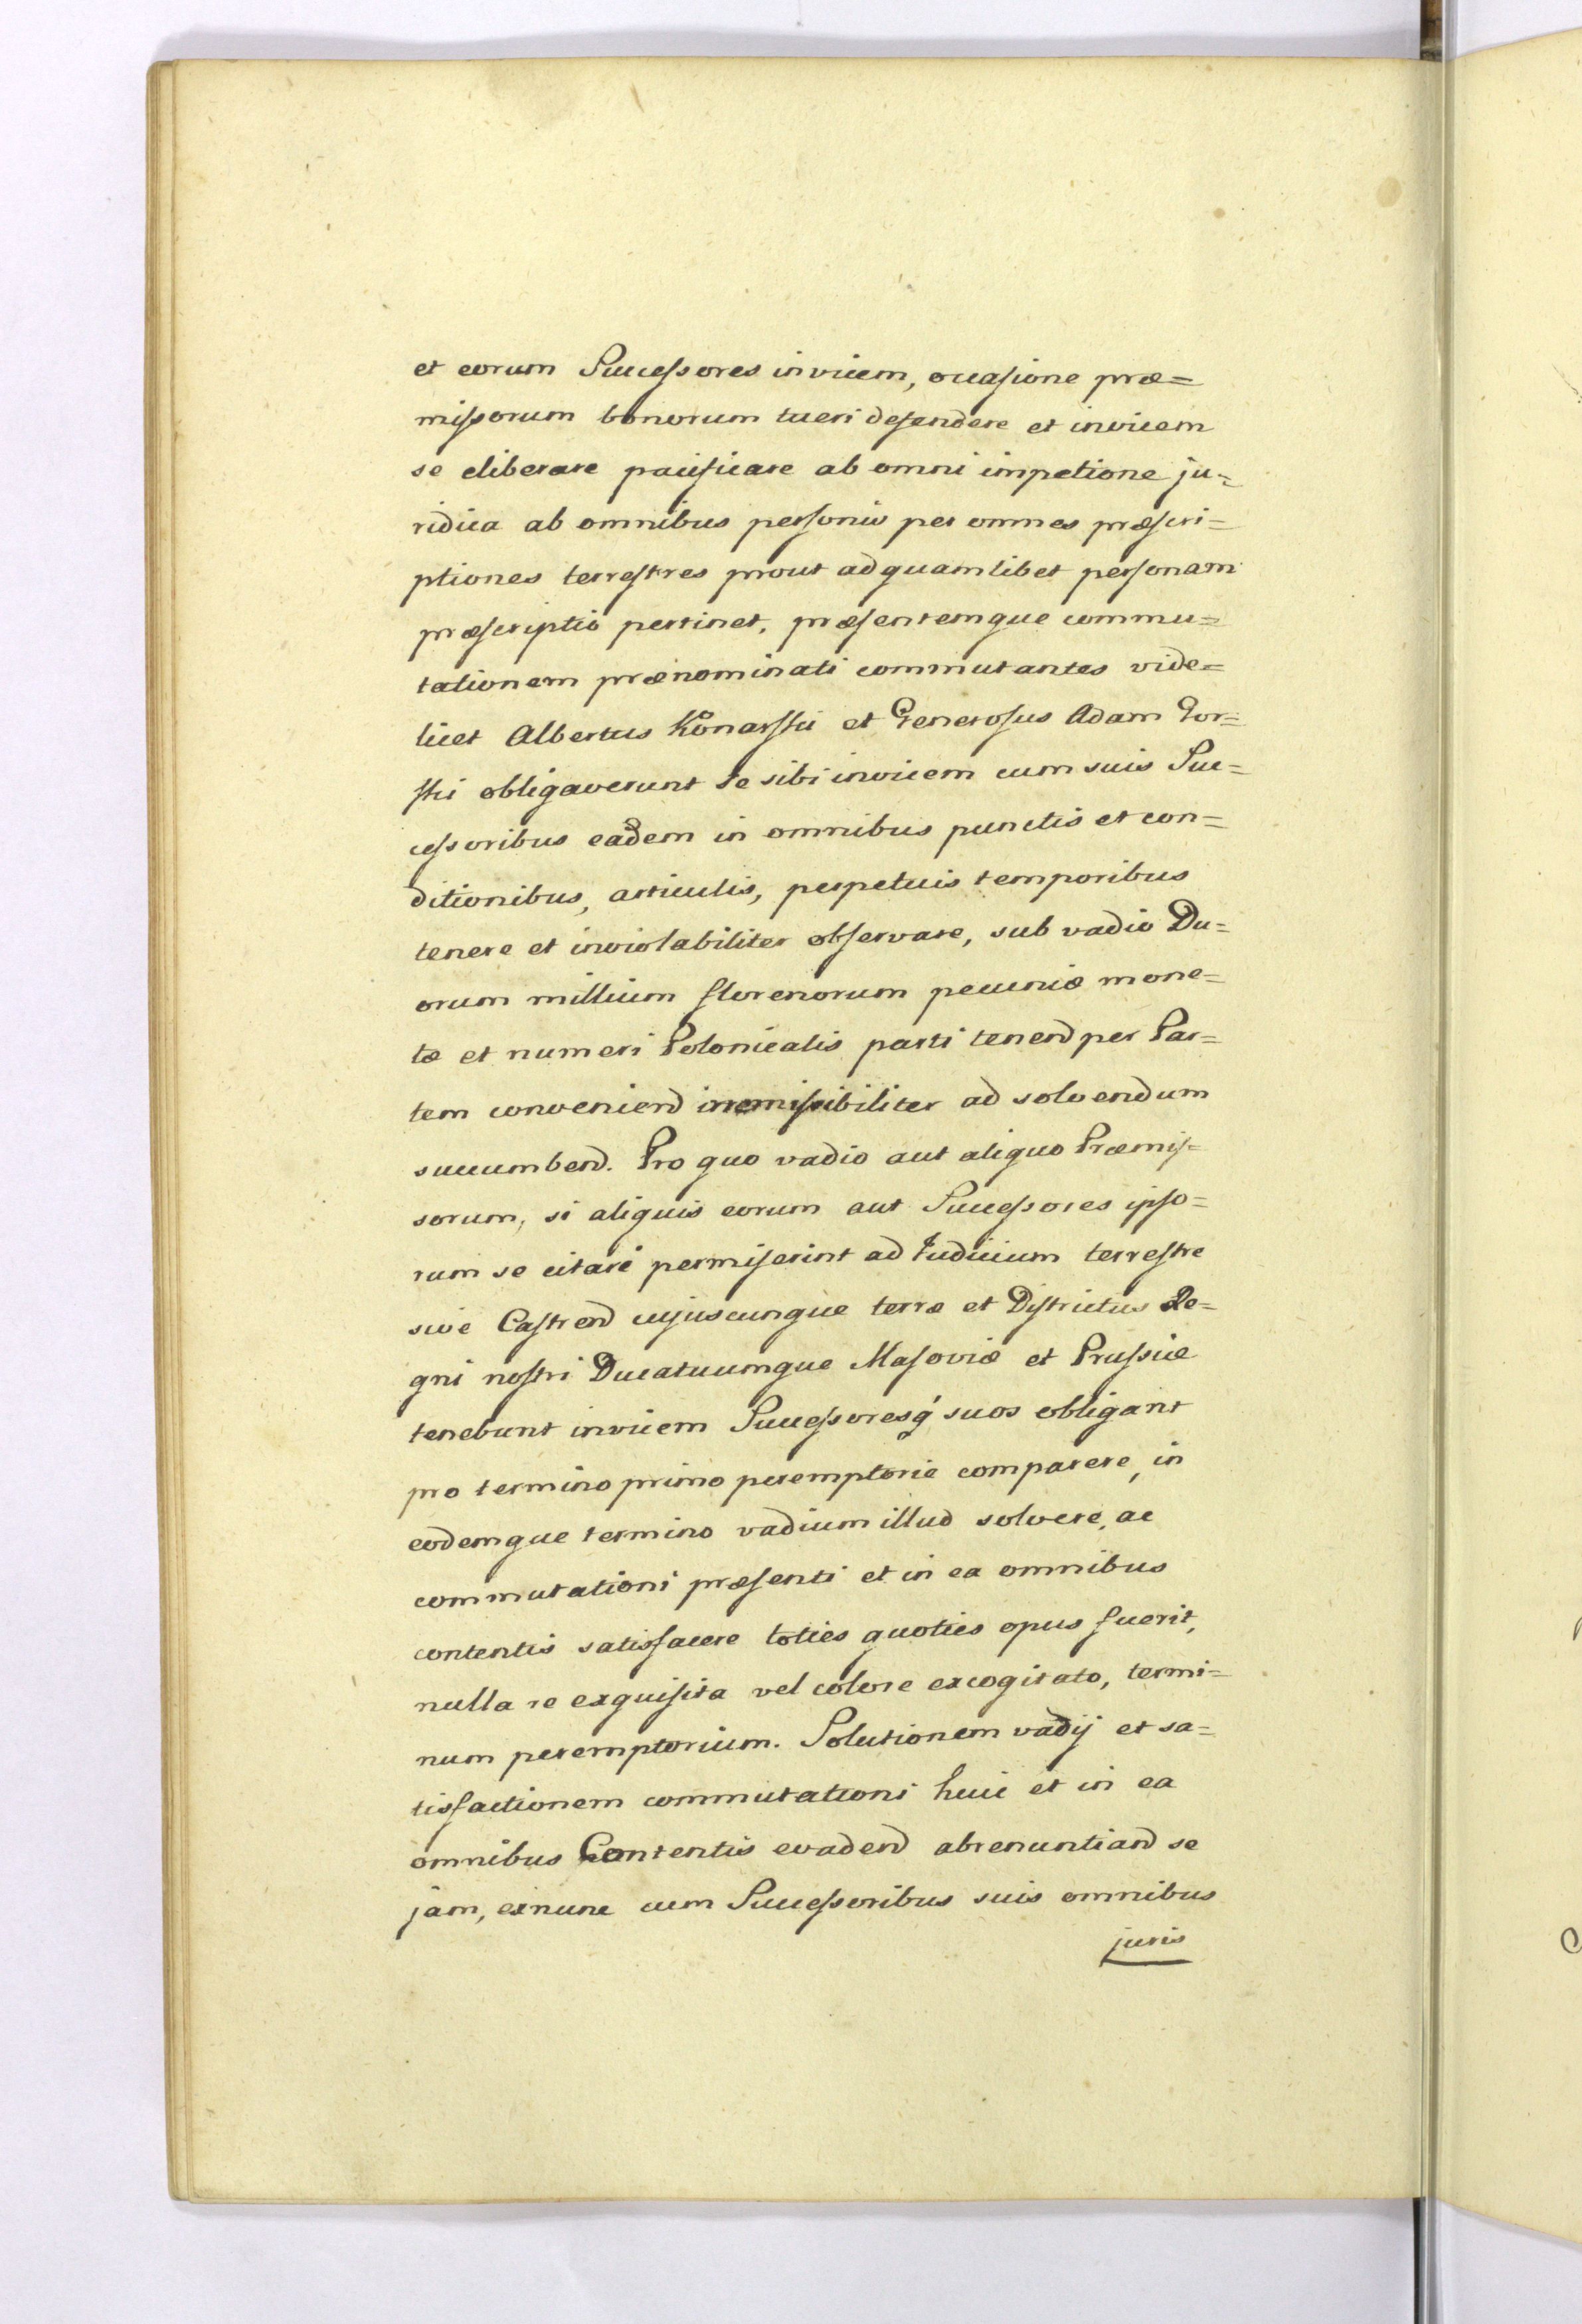 et eorum Successores invicem, occasione præ=
missorum bonorum tueri defendere et invicem
se eliberare pacificare ab omni impetione ju=
ridica ab omnibus personis per omnes præscri=
ptiones terrestres prout ad quamlibet personam
præscriptio pertinet, præsentemque commu=
tationem prænominati commutantes vide=
licet Albertus Konarski et Generosus Adam Tor=
ski obligaverunt se sibi invicem cum suis Suc=
cessoribus eadem in omnibus punctis et con=
ditionibus, articulis, perpetuis temporibus
tenere et inviolabiliter observare, sub vadio Du=
orum millium florenorum pecuniæ mone=
tæ et numeri Polonicalis parti tenend per Par=
tem conveniend irremissibiliter ad solvendum
succumbend. Pro quo vadio aut aliquo Præmis=
sorum, si aliquis eorum aut Successores ipso=
rum se citari permiserint ad Iudicium terrestre
sive Castrend cujuscunque terræ et Districtus Re=
gni nostri Ducatuumque Masoviæ et Prussiæ
tenebunt invicem Successoresq́ suos obligant
pro termino primo peremptorie comparere, in
eodemque termino vadium illud solvere, ac
commutationi præsenti et in ea omnibus
contentis satisfacere toties quoties opus fuerit,
nulla re exquisita vel colore excogitato, termi=
num peremptorium. Solutionem vadij et sa=
tisfactionem commutationi huic et in ea
omnibus Contentis evadend abrenuntiand se
jam, exnunc cum Successoribus suis omnibus
juris